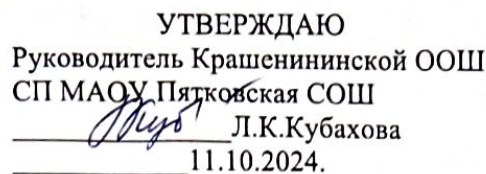 УТВЕРЖДАЮ
Руководитель Крашенининской ООШ
СП МАОУ Пятковская СОШ
Л.К.Кубахова
11.10.2024.